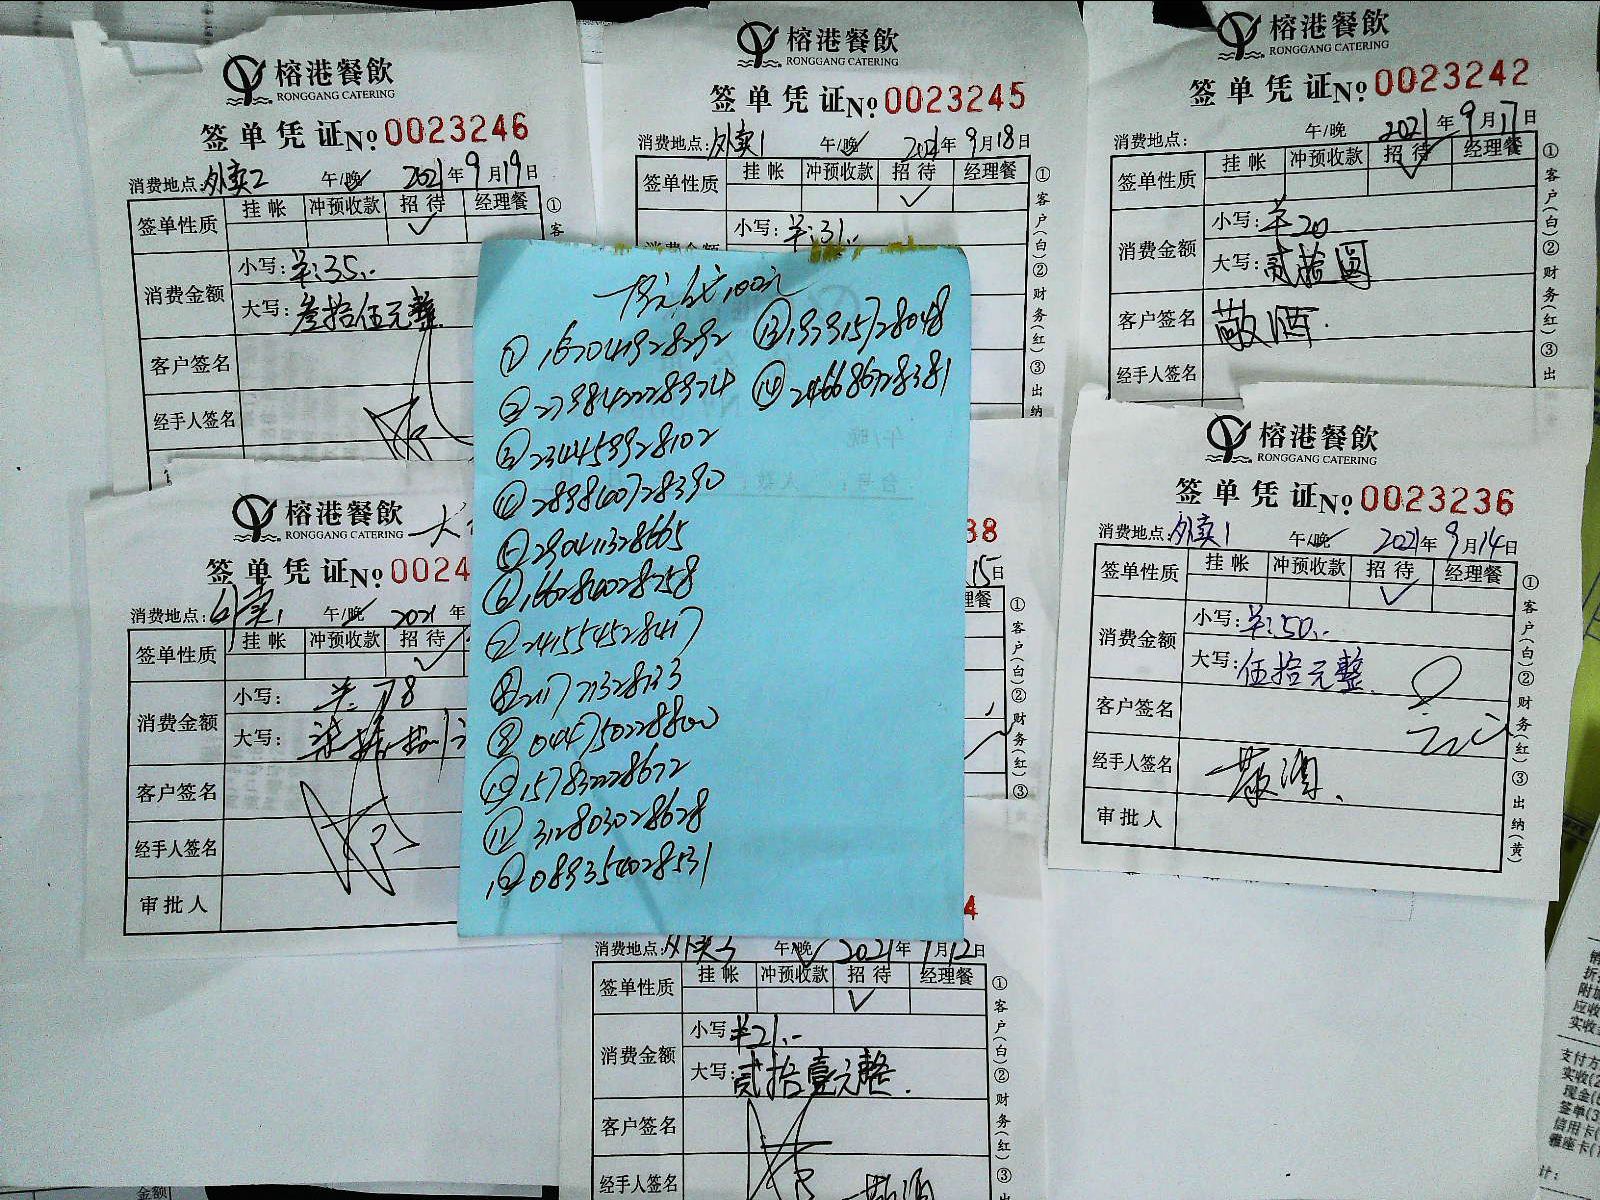 榕港餐飲
RONGGANG CATERING
签单凭证 No. 0023246
消费地点: 外卖2 午/晚 2021年9月19日
签单性质 挂帐 冲预收款 招待 经理餐
✓
消费金额 小写: ¥:35.-
大写: 叁拾伍元整
客户签名
经手人签名
①
客
榕港餐飲
RONGGANG CATERING
签单凭证 No. 0023245
消费地点: 外卖1 午/晚 2021年9月18日
签单性质 挂帐 冲预收款 招待 经理餐
✓
小写: ¥:31.-
①客户(白)②财务(红)③出纳
榕港餐飲
RONGGANG CATERING
签单凭证 No. 0023242
消费地点: 午/晚 2021年9月17日
签单性质 挂帐 冲预收款 招待 经理餐
消费金额 小写: ¥20
大写: 贰拾圆
客户签名
经手人签名
①客户(白)②财务(红)③出
100元
① 162041928292
② 279842228924
③ 234459928102
④ 289860728390
⑤ 290411328665
⑥ 166286028758
⑦ 241554528417
⑧ 211721328733
⑨ 044750228800
⑩ 157832228672
⑪ 312803028628
⑫ 089354028531
⑬ 192915728048
⑭ 246686728381
榕港餐飲
RONGGANG CATERING
签单凭证 No. 0024
消费地点: 外卖1 午/晚 2021年
签单性质 挂帐 冲预收款 招待
✓
消费金额 小写: ¥:78
大写:
客户签名
经手人签名
审批人
38
15日
理餐
①客户(白)②财务(红)③
榕港餐飲
RONGGANG CATERING
签单凭证 No. 0023236
消费地点: 外卖1 午/晚 2021年9月14日
签单性质 挂帐 冲预收款 招待 经理餐
✓
消费金额 小写: ¥:50.-
大写: 伍拾元整
客户签名
经手人签名
审批人
①客户(白)②财务(红)③出纳(黄)
4
消费地点: 外卖3 午/晚 2021年9月12日
签单性质 挂帐 冲预收款 招待 经理餐
✓
消费金额 小写: ¥21.-
大写: 贰拾壹元整
客户签名
经手人签名
①客户(白)②财务(红)③出
附加
应收
实收
支付方
实收(2
现金(
签单(3
信用卡(
雅座卡(
计:
金额